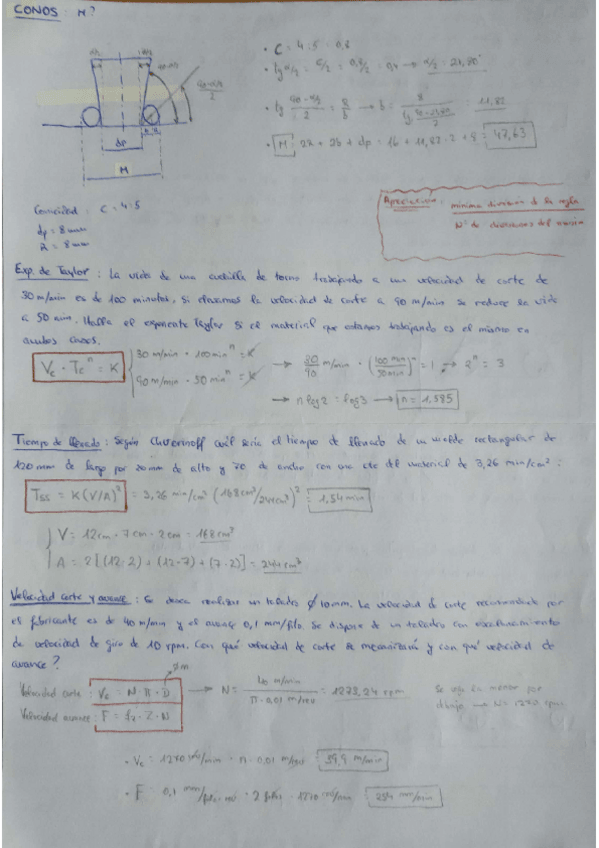 CONOS : M?
α/2
dp
M
90-α/2
2
Conicidad : C = 4:5
dp = 8 mm
R = 8 mm
• C = 4:5 = 0,8
• tg α/2 = C/2 = 0,8/2 = 0,4 → α/2 = 21,80°
• tg 90-α/2 / 2 = R/b → b = 8 / = 11,82
• M: 2R + 2b + dp = 16 + 11,82·2 + 8 = 47,63
Apreciacion = minima división de la regla
Nº de divisiones del nonius
Exp. de Taylor : La vida de una cuchilla de torno trabajando a una velocidad de corte de
30 m/min es de 100 minutos, si elevamos la velocidad de corte a 90 m/min se reduce la vida
a 50 min. Halla el exponente Taylor si el material que estamos trabajando es el mismo en
ambos casos.
Vc · Tc^n = K
30 m/min · 100 min^n = K
90 m/min · 50 min^n = K
→ 30/90 m/min · (100 min/50 min)^n = 1 → 2^n = 3
→ n log 2 = log 3 → n = 1,585
Tiempo de llenado : Según Chvorinoff cuál seria el tiempo de llenado de un molde rectangular de
120 mm de largo por 20 mm de alto y 70 de ancho con una cte del material de 3,26 min/cm² :
Tss = K(V/A)² = 3,26 min/cm² (168 cm³/244 cm²)² = 1,54 min
V = 12cm · 7cm · 2cm = 168 cm³
A = 2[(12·2) + (12·7) + (7·2)] = 244 cm²
Velocidad corte y avance : Se desea realizar un taladro Ø 10mm. La velocidad de corte recomendada por
el fabricante es de 40 m/min y el avance 0,1 mm/filo. Se dispone de un taladro con escalonamiento
de velocidad de giro de 10 rpm. Con qué velocidad de corte se mecanizará y con qué velocidad de
avance?
Velocidad corte : Vc = N · π · D → N = 40 m/min / π · 0,01 m/rev = 1273,24 rpm
Velocidad avance : F = fz · Z · N
Se coge la menor por
debajo → N = 1270 rpm
• Vc = 1270 rev/min · π · 0,01 m/rev = 39,9 m/min
• F = 0,1 mm/filo·rev · 2 filos · 1270 rev/min = 254 mm/min